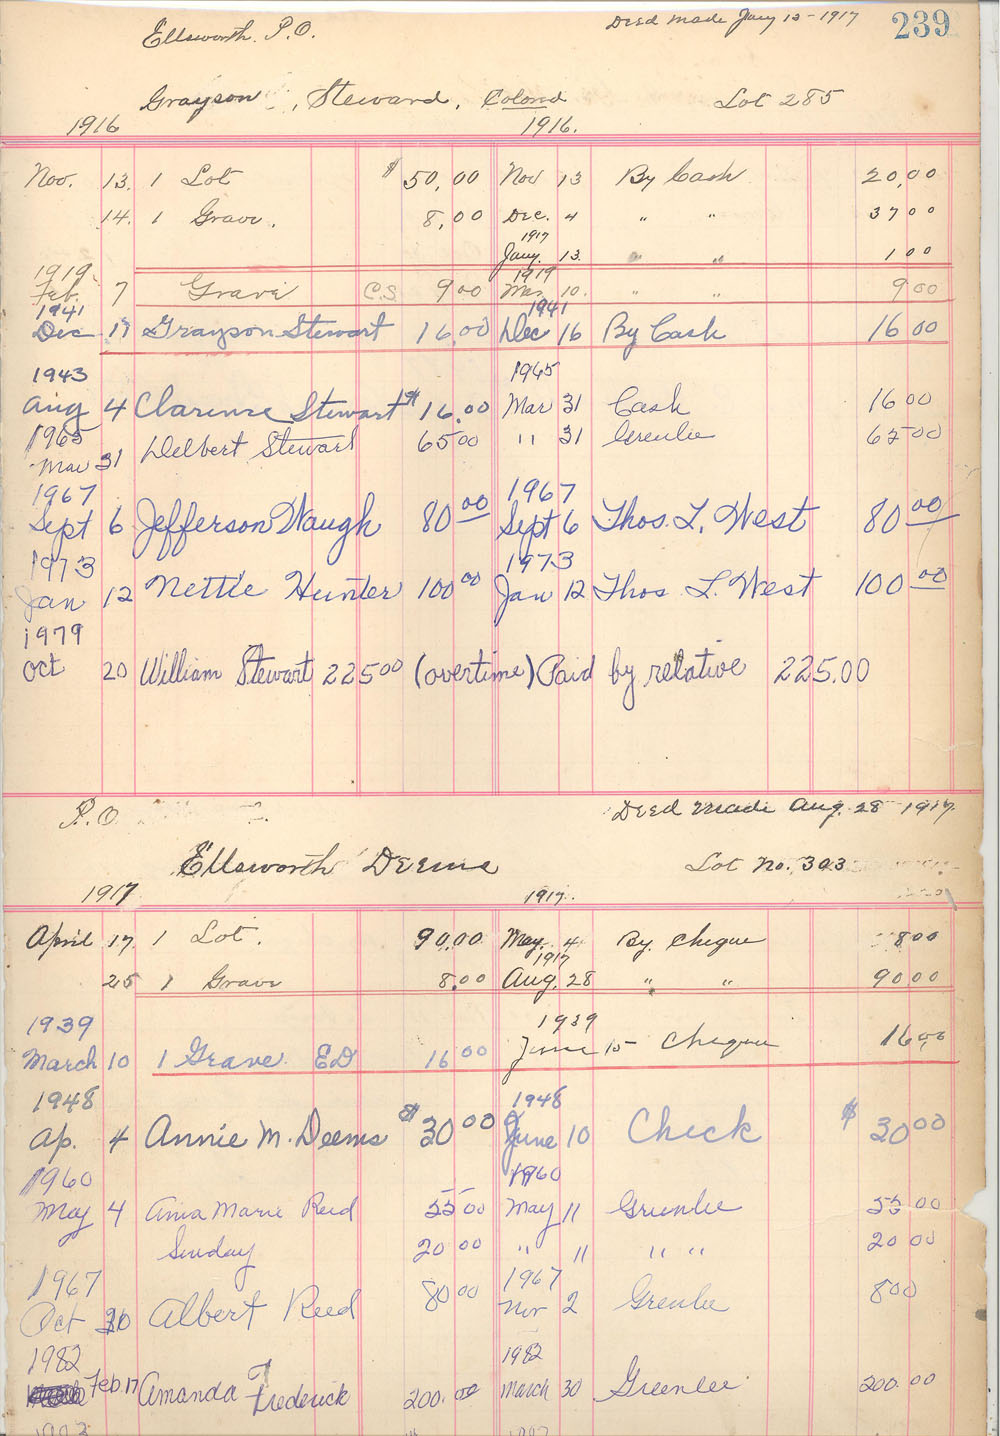 Ellsworth P.O. Deed Made Jany 13-1917 239
Grayson, Steward, Colored Lot 285
1916 1916.
Nov. 13. 1 Lot $ 50,00 Nov 13 By Cash 20,00
14. 1 Grave. 8,00 Dec. 4 " " 37 00
1917
Jany. 13. " " 1 00
1919. 1919
Feb. 7 Grave C.S. 9 00 Mar 10. " " 9 00
1941 1941
Dec 17 Grayson Stewart 16,00 Dec 16 By Cash 16 00
1943 1965
Aug 4 Clarence Stewart $ 16.00 Mar 31 Cash 16 00
1965
Mar 31 Delbert Stewart 65 00 " 31 Greenlee 65 00
1967 1967
Sept 6 Jefferson Waugh 80 00 Sept 6 Thos. L. West 80 00
1973 1973
Jan 12 Nettie Hunter 100 00 Jan 12 Thos L. West 100 00
1979
Oct 20 William Stewart 225 00 (overtime) Paid by relative 225.00
P.O. Deed Made Aug. 28-1917.
Ellsworth Deems Lot No. 303
1917 1917.
April 17. 1 Lot. 90.00 May. 4 By Cheque 8 00
1917
25 1 Grave 8.00 Aug. 28 " " 90 00
1939 1939
March 10 1 Grave. ED 16 00 June 15 Cheque 16,00
1948 1948
Ap. 4 Annie M. Deems $ 30 00 June 10 Check $ 30 00
1960 1960
May 4 Anna Marie Reed 55 00 May 11 Greenlee 55 00
Sunday 20 00 " 11 " " 20 00
1967 1967
Oct 30 Albert Reed 80 00 Nov 2 Greenlee 8 00
1982 1982
Feb. 17 Amanda Frederick 200. 00 March 30 Greenlee 200. 00